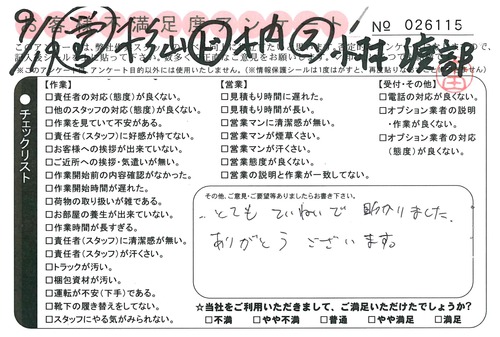 お客さま満足度アンケート
№ 026115
※このアンケートは、アンケート目的以外には使用いたしません。(※情報保護シールは1度はがすと、再度貼りなおすことはできません)
チェックリスト
【作業】
□責任者の対応(態度)が良くない。
□他のスタッフの対応(態度)が良くない。
□作業を見ていて不安がある。
□責任者(スタッフ)に好感が持てない。
□お客様への挨拶が出来ていない。
□ご近所への挨拶・気遣いが無い。
□作業開始前の内容確認がなかった。
□作業開始時間が遅れた。
□荷物の取り扱いが雑である。
□お部屋の養生が出来ていない。
□作業時間が長すぎる。
□責任者(スタッフ)に清潔感が無い。
□責任者(スタッフ)が汗くさい。
□トラックが汚い。
□梱包資材が汚い。
□運転が不安(下手)である。
□靴下の履き替えをしてない。
□スタッフにやる気がみられない。
【営業】
□見積もり時間に遅れた。
□見積もり時間が長い。
□営業マンに清潔感が無い。
□営業マンが煙草くさい。
□営業マンが汗くさい。
□営業態度が良くない。
□営業の説明と作業が一致してない。
【受付・その他】
□電話の対応が良くない。
□オプション業者の説明・作業が良くない。
□オプション業者の対応(態度)が良くない。
その他、ご意見・ご要望等ありましたらお書き下さい。
とても ていねいで 助かりました。
ありがとう ございます。
☆当社をご利用いただきまして、ご満足いただけたでしょうか?
□不満 □やや不満 □普通 □やや満足 □満足